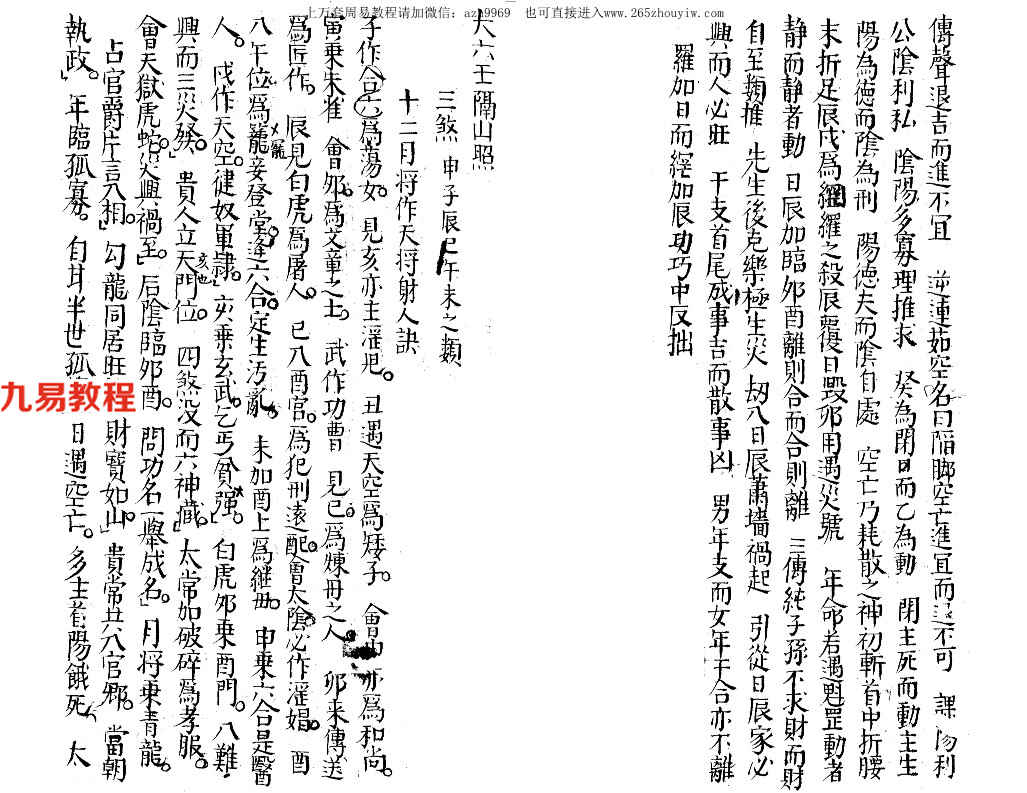 上万套周易教程请加微信：azh9969 也可直接进入www.265zhouyiw.com
傳聲退吉而進不宜 逆連茹空名曰陷脚空亡進宜而退不可 課陽利
公陰利私 陰陽多寡理推求 癸為閉日而乙為動 閉主死而動主生
陽為德而陰為刑 陽德夫而陰自處 空亡乃耗散之神初斬首中折腰
末折足辰戌爲羅之殺辰覆日毀卯用遇災號 年命若遇魁罡動者
静而静者動 日辰加臨卯酉離則合而合則離 三傳純子孫不求財而財
自至推 先生後克樂極生災 刼入日辰蕭墻禍起 引從日辰家必
興而人必旺 干支首尾成事吉而散事凶 男年支而女年干合亦不離
羅加日而縲加辰功巧中反拙
大六壬隔山照
三煞 申子辰巳午未之類
十二月將作天將射人訣
子作合爲蕩女。見亥亦主淫。丑遇天空爲矮子。會爲和尚。
寅乘朱雀 會卯爲文章之士。武作功曹 見巳爲媒母之人。卯來傳送
爲匠作。辰見白虎爲屠人。巳入酉宫爲犯刑遠配會太陰必作淫娼。酉
八午位爲龍妾登堂逢六合。定生汚亂。未加酉上爲繼母。申乘六合是醫
人。戌作天空。健奴軍隸。亥乘玄武。乞丐貧强。白虎卯乘酉門。八難
興而三災發。貴人立天門位。四煞没而六神藏。太常加破碎爲孝服。
亥也
會天獄虎蛇災興禍至。后陰臨卯酉。問功名一舉成名。月將乘青龍。
占官爵片言入相。勾龍同居旺財寶如山。貴常共入官鄉。當朝
執政。年臨孤寡。自耳半世孤日遇空亡。多主首陽餓死 太
九易教程